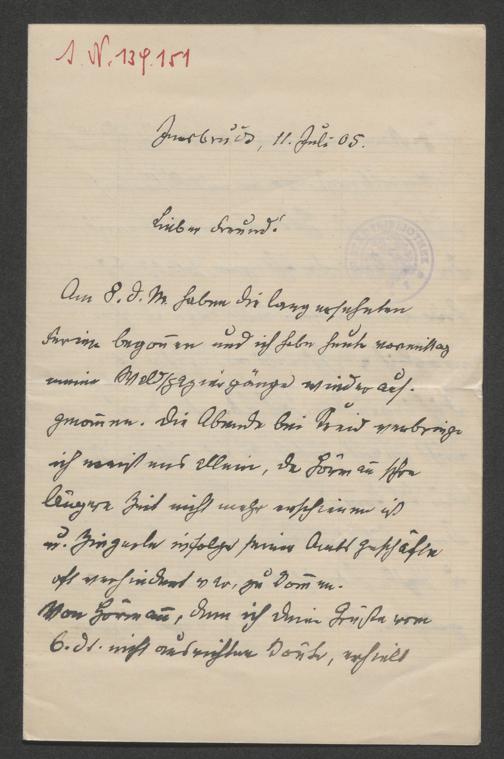 J. N. 139.151
Innsbruck, 11. Juli 05.
Lieber Freund!
Am 8. d. M. haben die lang ersehnten
Ferien begonnen und ich habe heute vormittag
meine Waldspaziergänge wieder auf-
genommen. Die Abende bei Kreid verbringe
ich meistens allein, da Hörmann schon
längere Zeit nicht mehr erschienen ist
u. Zingerle infolge seiner Amtsgeschäfte
oft verhindert war, zu kommen.
Von Hörmann, dem ich deine Grüße vom
6. ds. nicht ausrichten konnte, erhielt